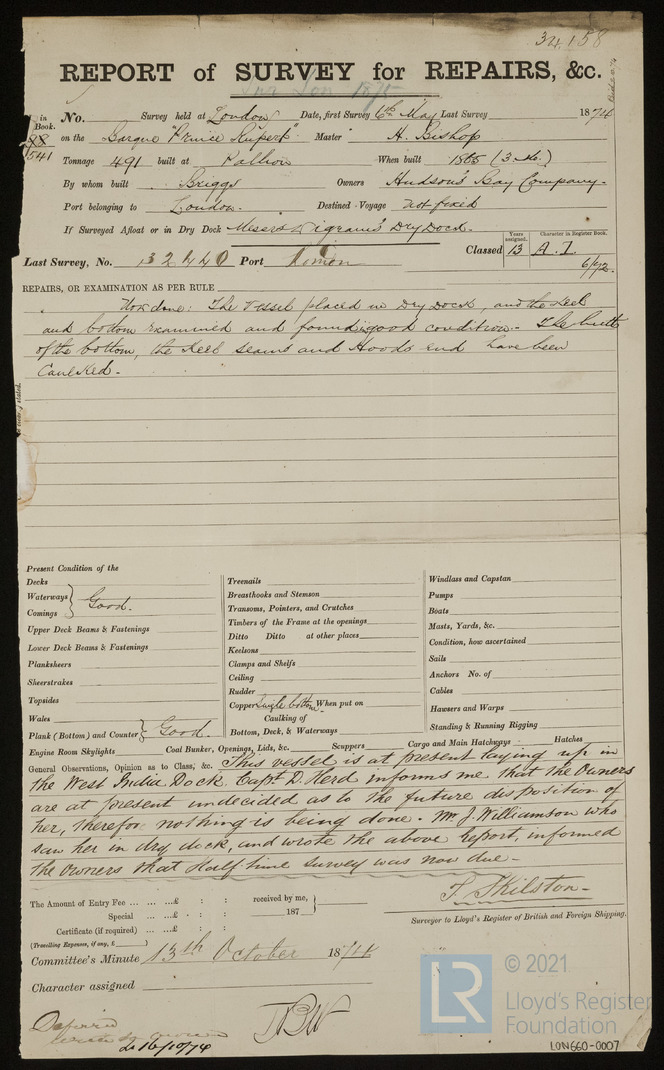 34158
REPORT of SURVEY for REPAIRS, &c.
in Book.
No. Survey held at London Date, first Survey 6th May Last Survey 1874
88
541
on the Barque "Prince Rupert" Master H. Bishop
Tonnage 491 built at Pallion When built 1865 (3 Mo.)
By whom built Briggs Owners Hudson's Bay Company.
Port belonging to London. Destined Voyage not fixed
If Surveyed Afloat or in Dry Dock Messrs Wigram's Dry Dock.
Years assigned. Character in Register Book.
Last Survey, No. 32440 Port London Classed 13 A.1.
6/72.
REPAIRS, OR EXAMINATION AS PER RULE
Now done: The Vessel placed in Dry Dock, and the Keel
and bottom examined and found in good condition. The butts
of the bottom, the Keel seams and Hoods end have been
Caulked.
Present Condition of the
Decks
Waterways
Comings
Good.
Upper Deck Beams & Fastenings
Lower Deck Beams & Fastenings
Planksheers
Sheerstrakes
Topsides
Wales
Plank (Bottom) and Counter Good.
Engine Room Skylights
Treenails
Breasthooks and Stemson
Transoms, Pointers, and Crutches
Timbers of the Frame at the openings
Ditto Ditto at other places
Keelsons
Clamps and Shelfs
Ceiling
Rudder
Copper Single bottom When put on
Caulking of
Bottom, Deck, & Waterways
Coal Bunker, Openings, Lids, &c. Scuppers
Windlass and Capstan
Pumps
Boats
Masts, Yards, &c.
Condition, how ascertained
Sails
Anchors No. of
Cables
Hawsers and Warps
Standing & Running Rigging
Cargo and Main Hatchways Hatches
General Observations, Opinion as to Class, &c. This vessel is at present laying up in
the West India Dock. Capt. D. Herd informs me that the Owners
are at present undecided as to the future disposition of
her, therefor nothing is being done. Mr. J. Williamson who
saw her in dry dock, and wrote the above Report, informed
the Owners that Half time survey was now due.
The Amount of Entry Fee ... £ : : received by me,
Special ... £ : : 187
Certificate (if required) ... £ : :
(Travelling Expenses, if any, £ )
T. Skilston
Surveyor to Lloyd's Register of British and Foreign Shipping.
Committee's Minute 13th October 1874
Character assigned
Deferred
16/10/74
LR
© 2021
Lloyd's Register
Foundation
LON660-0007